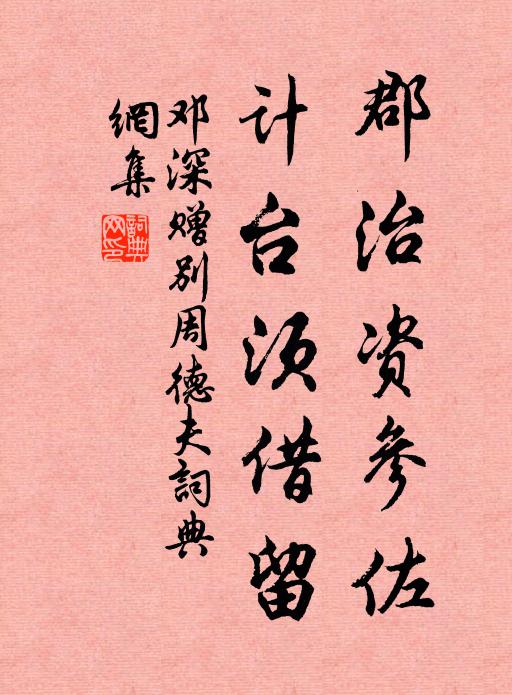 郡治资参佐
计台须借留
邓深赠别周德夫詞典
網集
詞典網印